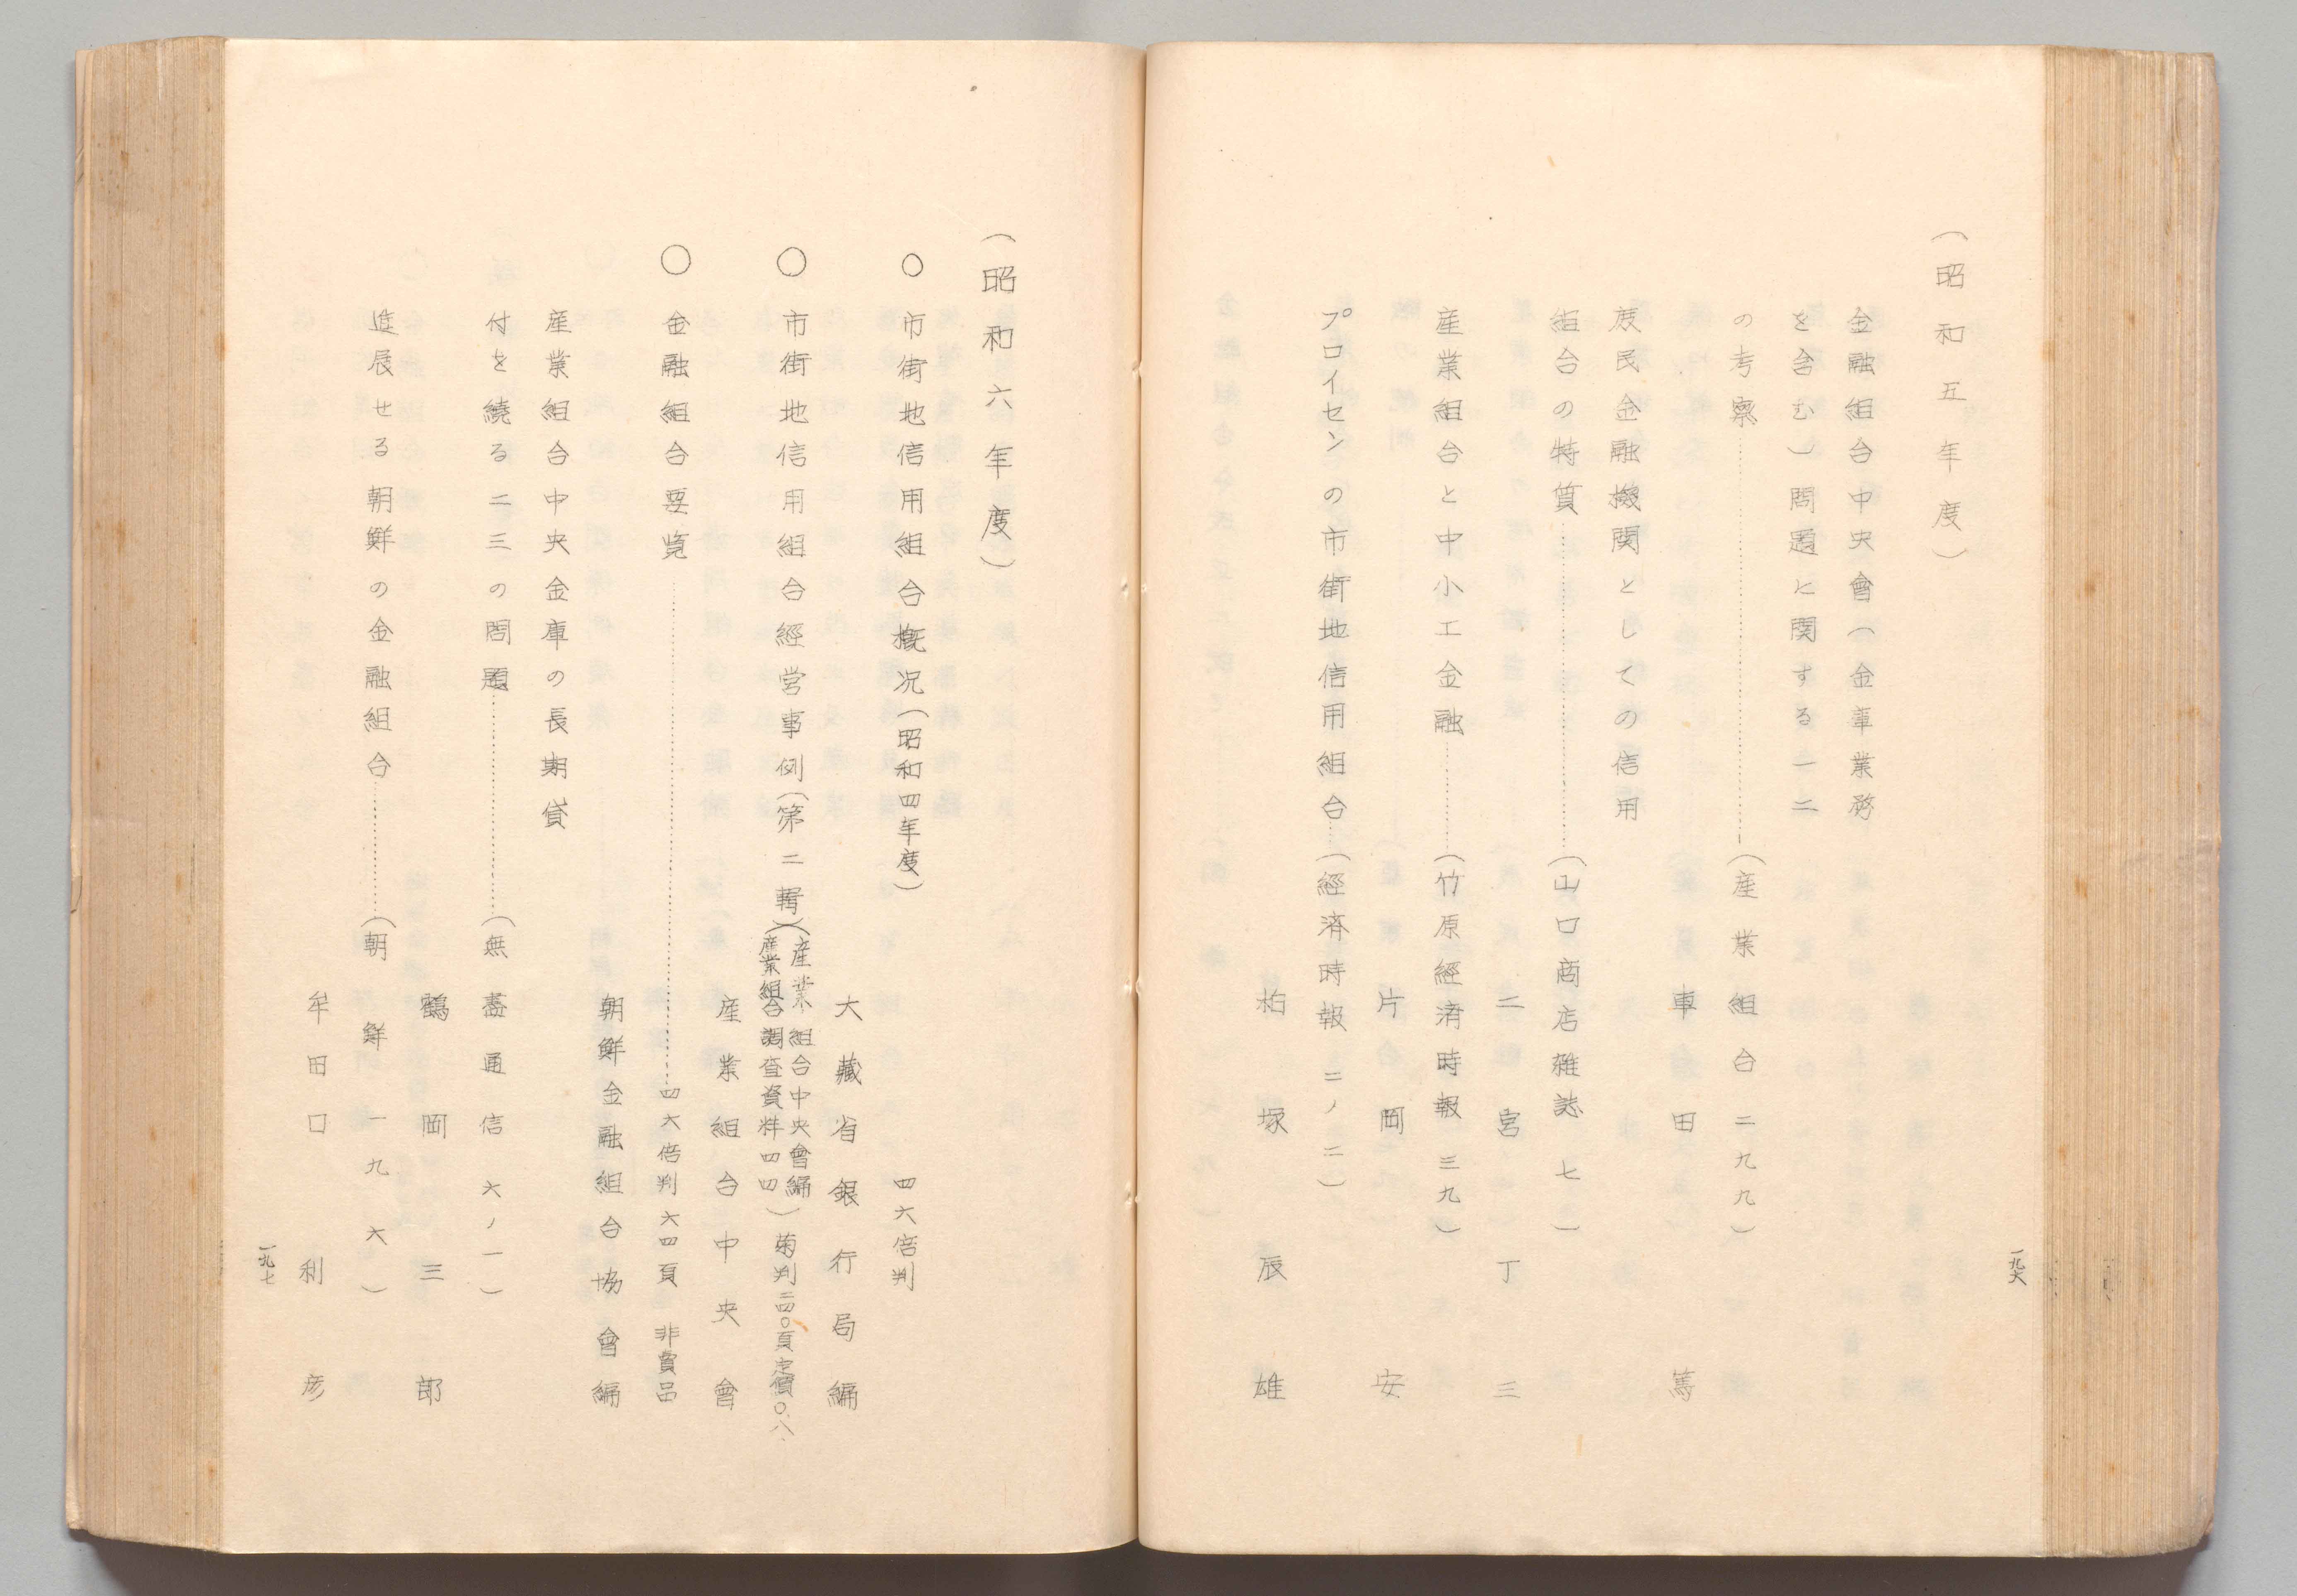 (昭和五年度)
金融組合中央會(金庫業務
を含む)問題に関する一二
の考察…………(産業組合 二九九)
車田 篤
庶民金融機関としての信用
組合の特質…………(山口商店雑誌 七一)
二宮 丁三
産業組合と中小工金融…………(竹原經済時報 三九)
片岡 安
プロイセンの市街地信用組合…(經済時報 二ノ二)
柏塚 辰雄
一九六
(昭和六年度)
○ 市街地信用組合概況(昭和四年度) 四六倍判
大藏省銀行局編
○ 市街地信用組合經営事例(第二輯)(産業組合中央會編
産業組合調査資料四四) 菊判二四〇頁定價〇.八
産業組合中央會
○ 金融組合要覧…………四六倍判六四頁 非賣品
朝鮮金融組合協會編
産業組合中央金庫の長期貸
付を繞る二三の問題…………(無盡通信 六ノ一)
鶴岡 三郎
進展せる朝鮮の金融組合…………(朝鮮 一九六)
牟田口 利彦
一九七